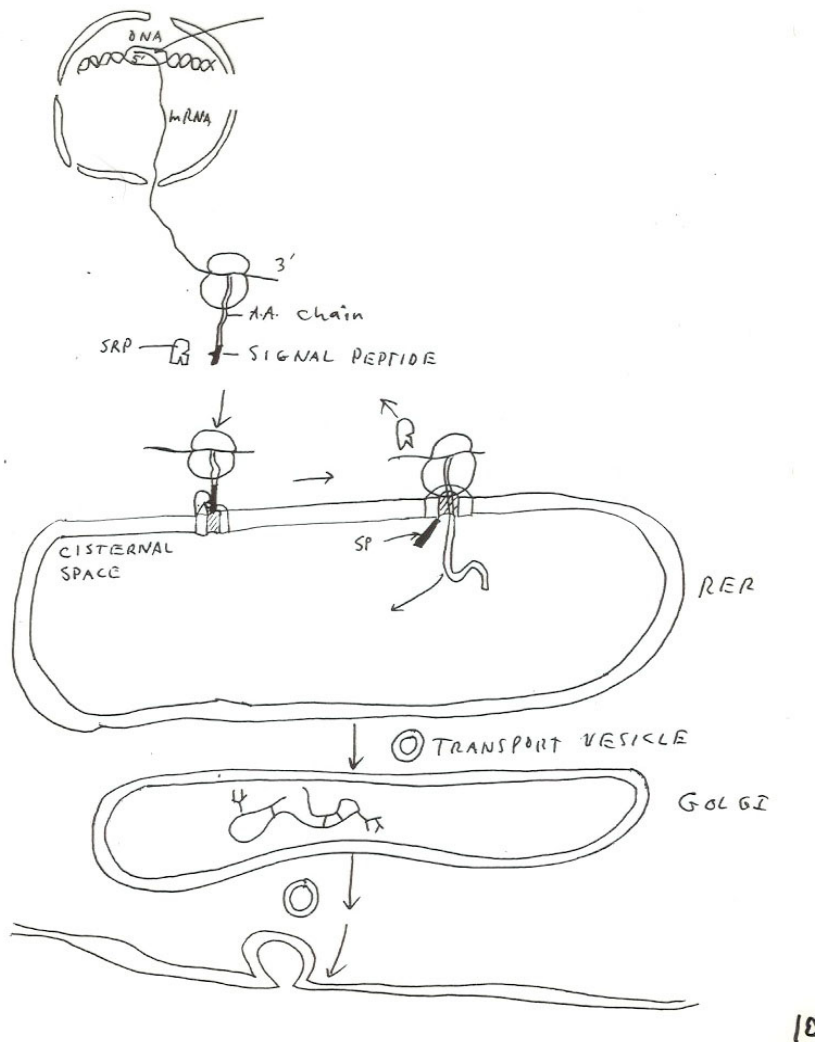 DNA
5'
mRNA
3'
A.A. chain
SRP
SIGNAL PEPTIDE
CISTERNAL
SPACE
SP
RER
TRANSPORT VESICLE
GOLGI